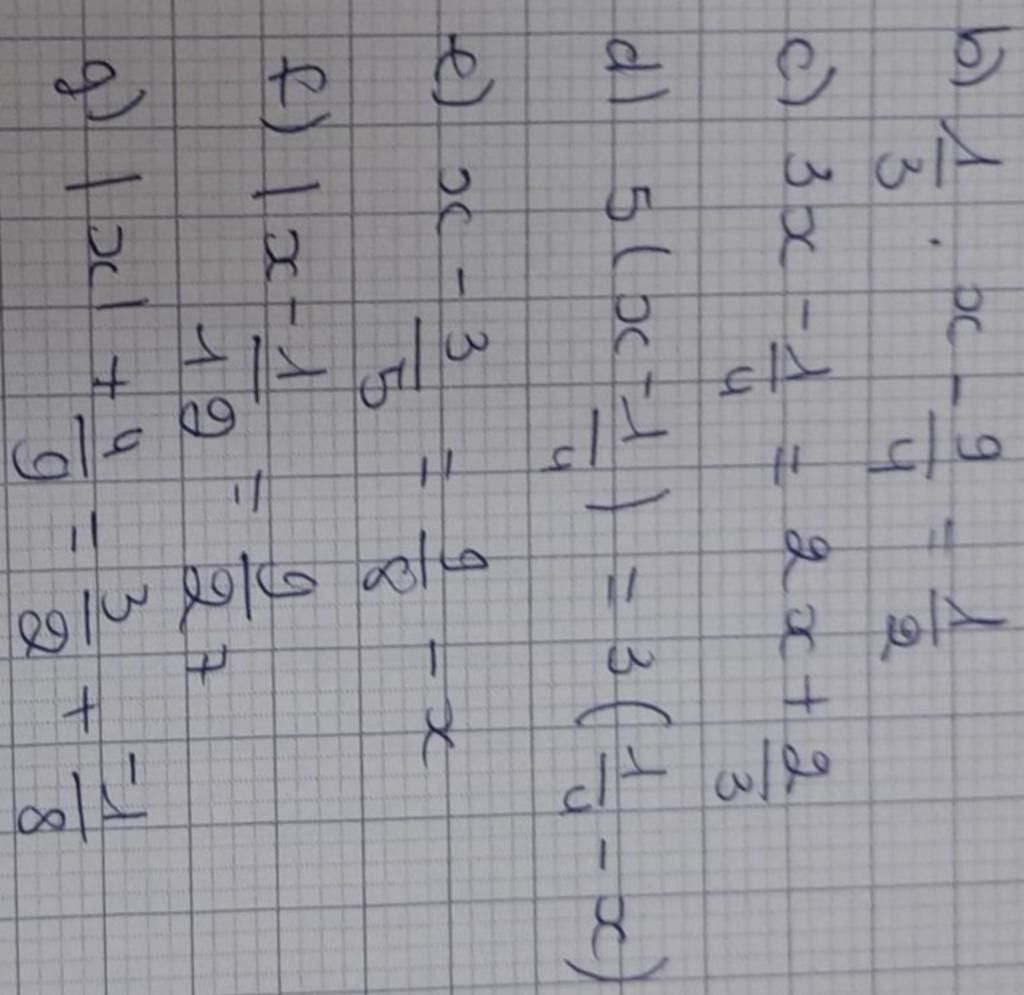 b) 1/3 · x - 9/4 = 1/2
c) 3x - 1/4 = 2x + 2/3
d) 5(x - 1/4) = 3(1/4 - x)
e) x - 3/5 = 9/8 - x
f) |x - 1/12 = 9/27
g) |x| + 4/9 = 3/2 + -1/8